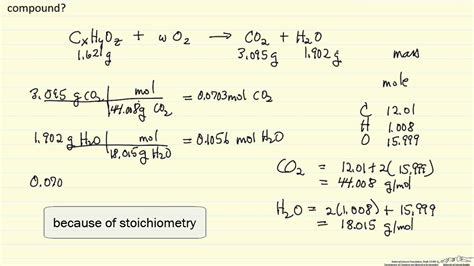 compound?
CxHyOz + w O2 → CO2 + H2O
1.621g 3.095g 1.902g mass
mole
3.095 g CO2 | mol = 0.0703 mol CO2
44.008g CO2
C 12.01
H 1.008
O 15.999
1.902g H2O | mol = 0.1056 mol H2O
18.015g H2O
CO2 = 12.01 + 2(15.999)
= 44.008 g/mol
0.070
H2O = 2(1.008) + 15.999
= 18.015 g/mol
because of stoichiometry